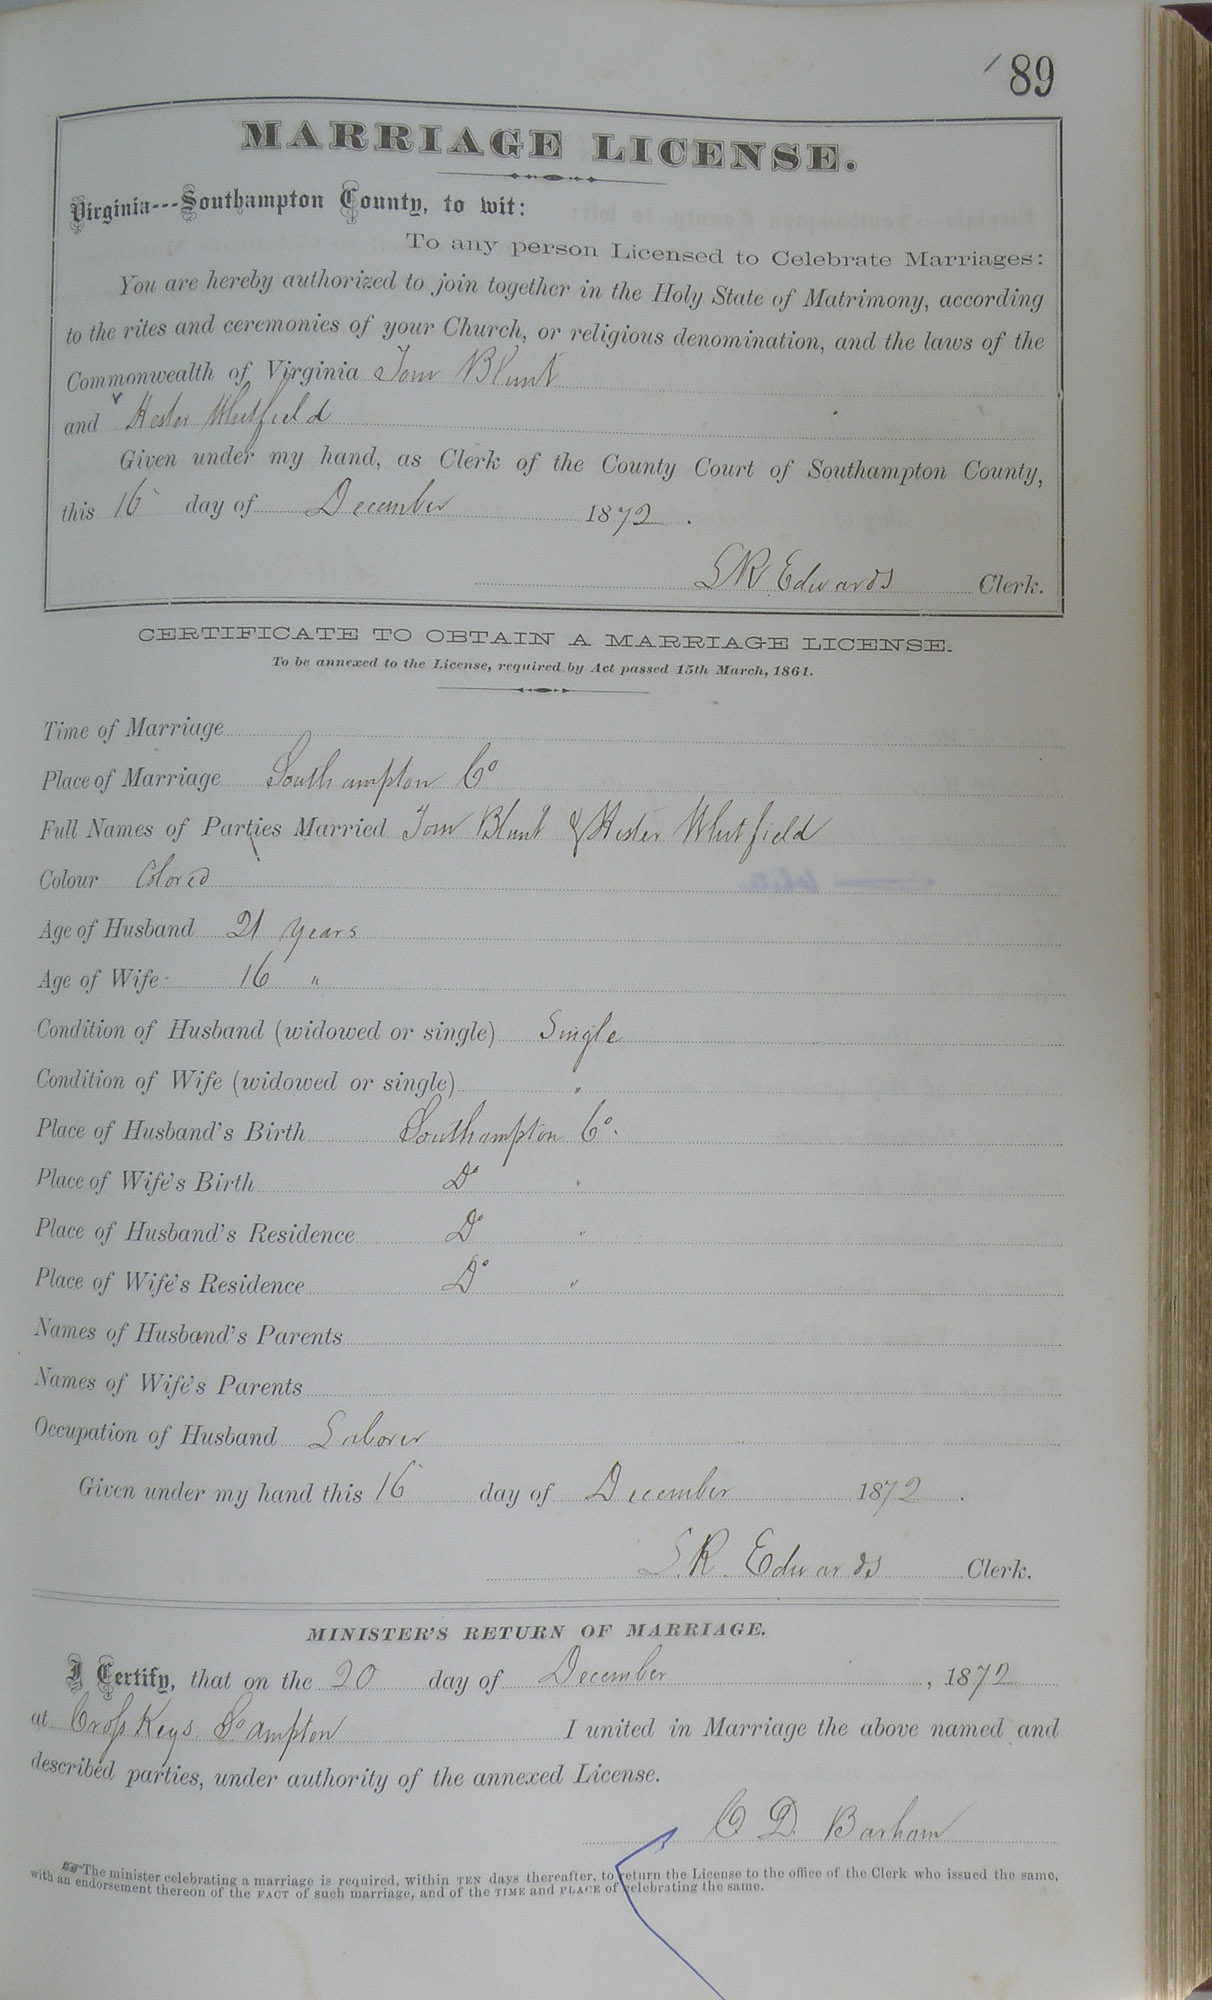 89
MARRIAGE LICENSE.
Virginia---Southampton County, to wit:
To any person Licensed to Celebrate Marriages:
You are hereby authorized to join together in the Holy State of Matrimony, according
to the rites and ceremonies of your Church, or religious denomination, and the laws of the
Commonwealth of Virginia Tom Blunt
and Hester Whitfield
Given under my hand, as Clerk of the County Court of Southampton County,
this 16 day of December 1872.
S R Edwards Clerk.
CERTIFICATE TO OBTAIN A MARRIAGE LICENSE.
To be annexed to the License, required by Act passed 15th March, 1861.
Time of Marriage
Place of Marriage Southampton Co
Full Names of Parties Married Tom Blunt & Hester Whitfield
Colour Colored
Age of Husband 21 years
Age of Wife 16 "
Condition of Husband (widowed or single) Single
Condition of Wife (widowed or single) "
Place of Husband's Birth Southampton Co.
Place of Wife's Birth Do "
Place of Husband's Residence Do "
Place of Wife's Residence Do "
Names of Husband's Parents
Names of Wife's Parents
Occupation of Husband Laborer
Given under my hand this 16 day of December 1872.
S.R. Edwards Clerk.
MINISTER'S RETURN OF MARRIAGE.
I Certify, that on the 20 day of December, 1872
at Cross Keys. So ampton I united in Marriage the above named and
described parties, under authority of the annexed License.
C D. Barham
The minister celebrating a marriage is required, within TEN days thereafter, to return the License to the office of the Clerk who issued the same,
with an endorsement thereon of the FACT of such marriage, and of the TIME and PLACE of celebrating the same.